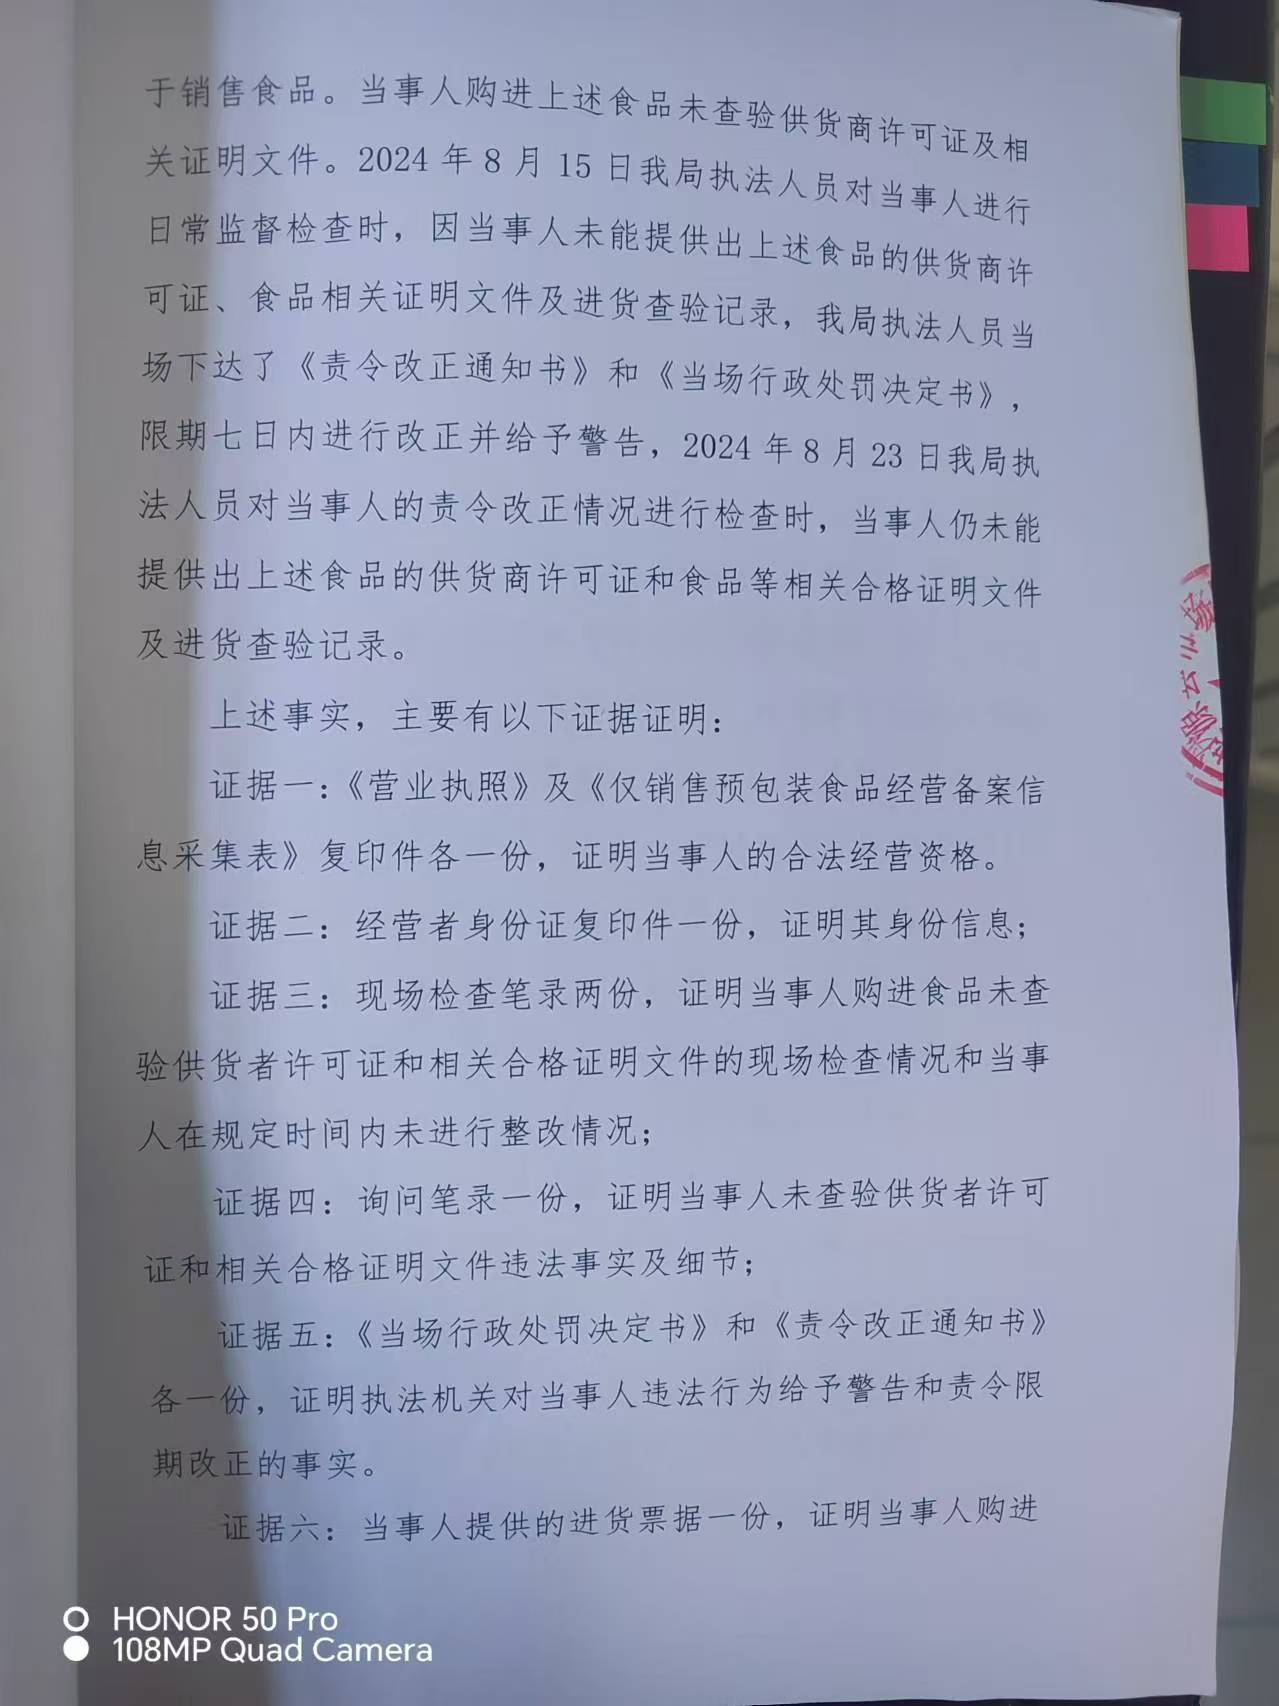 于销售食品。当事人购进上述食品未查验供货商许可证及相
关证明文件。2024年8月15日我局执法人员对当事人进行
日常监督检查时，因当事人未能提供出上述食品的供货商许
可证、食品相关证明文件及进货查验记录，我局执法人员当
场下达了《责令改正通知书》和《当场行政处罚决定书》，
限期七日内进行改正并给予警告，2024年8月23日我局执
法人员对当事人的责令改正情况进行检查时，当事人仍未能
提供出上述食品的供货商许可证和食品等相关合格证明文件
及进货查验记录。
上述事实，主要有以下证据证明：
证据一：《营业执照》及《仅销售预包装食品经营备案信
息采集表》复印件各一份，证明当事人的合法经营资格。
证据二：经营者身份证复印件一份，证明其身份信息；
证据三：现场检查笔录两份，证明当事人购进食品未查
验供货者许可证和相关合格证明文件的现场检查情况和当事
人在规定时间内未进行整改情况；
证据四：询问笔录一份，证明当事人未查验供货者许可
证和相关合格证明文件违法事实及细节；
证据五：《当场行政处罚决定书》和《责令改正通知书》
各一份，证明执法机关对当事人违法行为给予警告和责令限
期改正的事实。
证据六：当事人提供的进货票据一份，证明当事人购进
HONOR 50 Pro
108MP Quad Camera